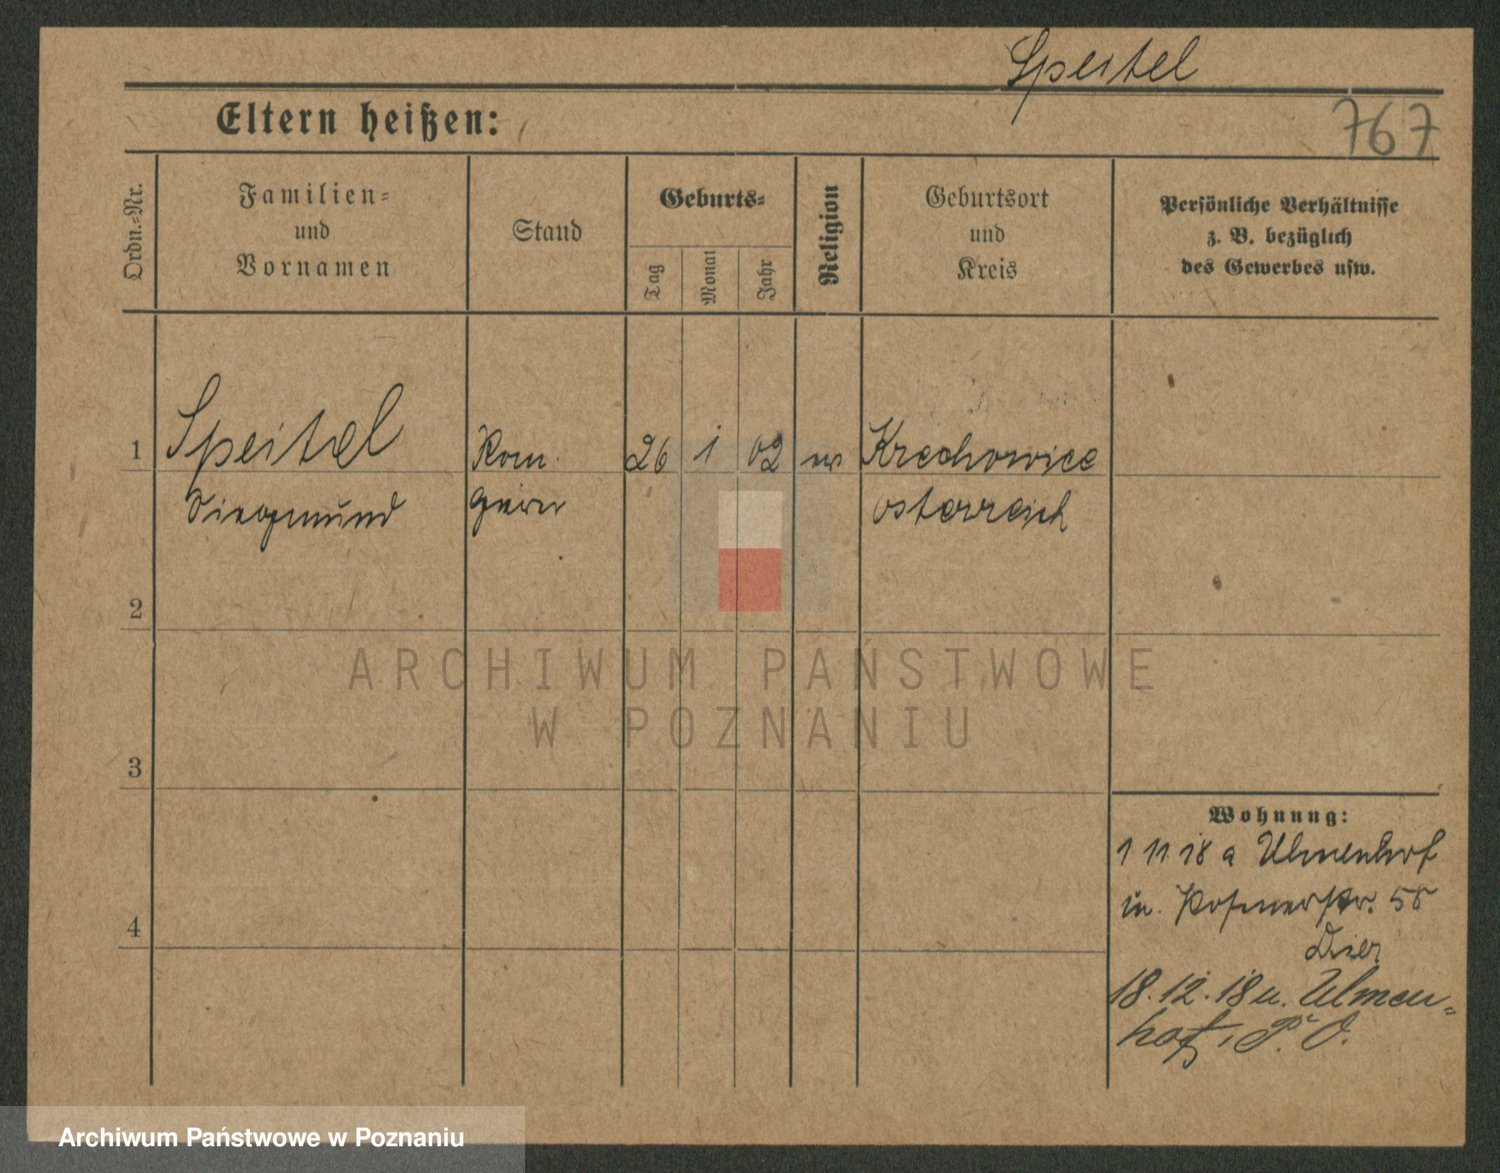 Speitel
Eltern heißen:
767
Ordn.=Nr.
Familien=
und
Vornamen
Stand
Geburts=
Tag
Monat
Jahr
Religion
Geburtsort
und
Kreis
Persönliche Verhältnisse
z. B. bezüglich
des Gewerbes usw.
1
Speitel
26 1 02
Krechowice
Siegmund
Österreich
2
ARCHIWUM PAŃSTWOWE
W POZNANIU
3
Wohnung:
1 11 18 a Ulmenhof
in. Posenerstr. 55
4
18.12.18 u. Ulmen-
hof, P. O.
Archiwum Państwowe w Poznaniu